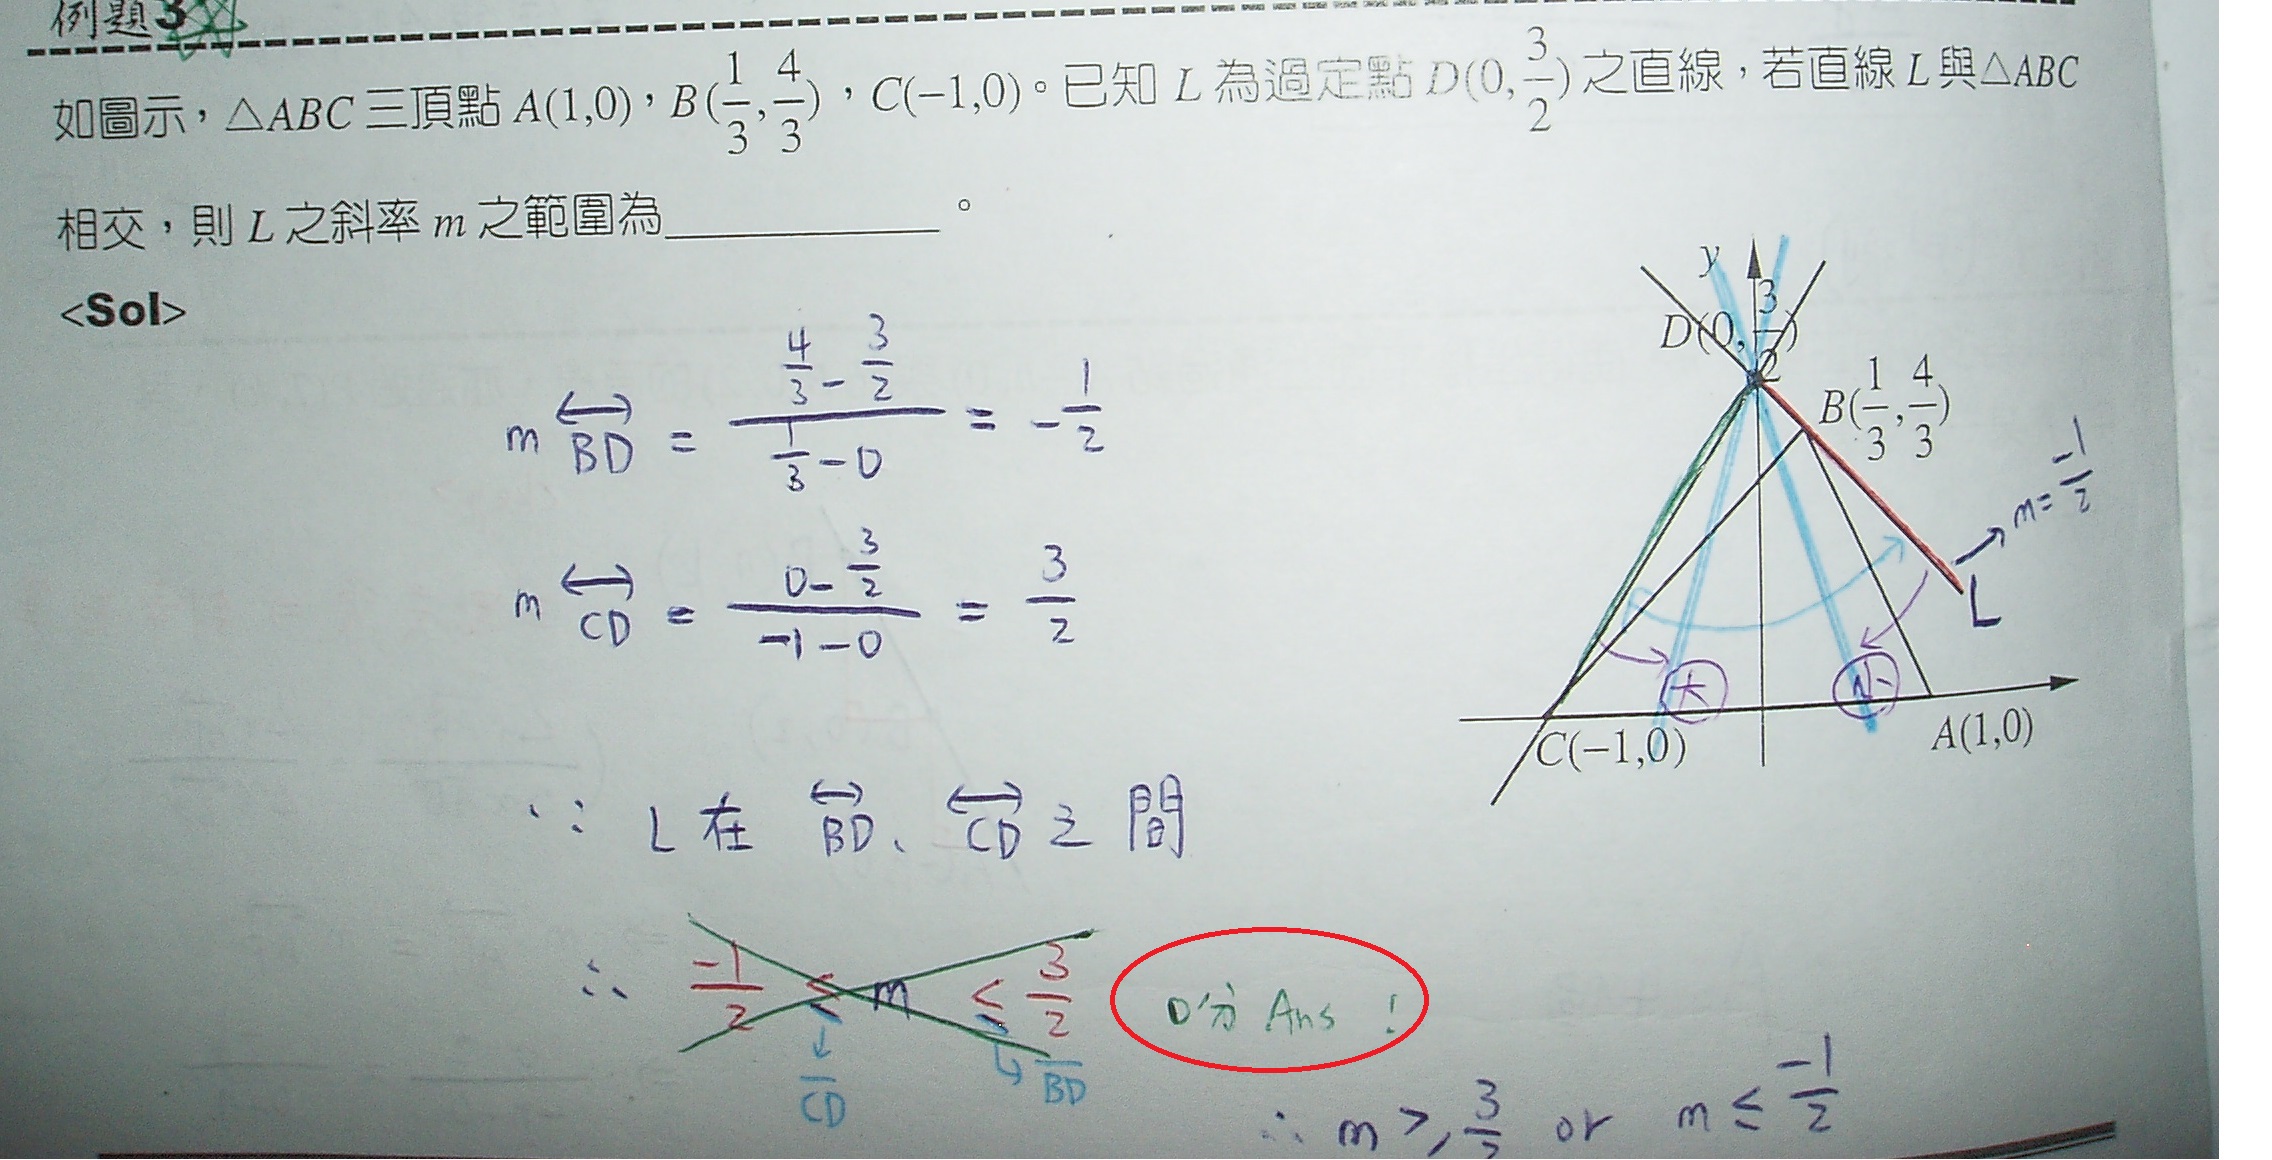 例題3
如圖示，△ABC 三頂點 A(1,0)，B(1/3,4/3)，C(−1,0)。已知 L 為過定點 D(0,3/2) 之直線，若直線 L 與△ABC
相交，則 L 之斜率 m 之範圍為__________。
<Sol>
m BD = (4/3 - 3/2)/(1/3 - 0) = -1/2
m CD = (0 - 3/2)/(-1 - 0) = 3/2
∵ L 在 BD、CD 之間
∴ -1/2 ≤ m ≤ 3/2 0分 Ans !
CD BD
∴ m ≥ 3/2 or m ≤ -1/2
y
D(0,3/2)
B(1/3,4/3)
m = -1/2
L
大 小
C(−1,0) A(1,0)